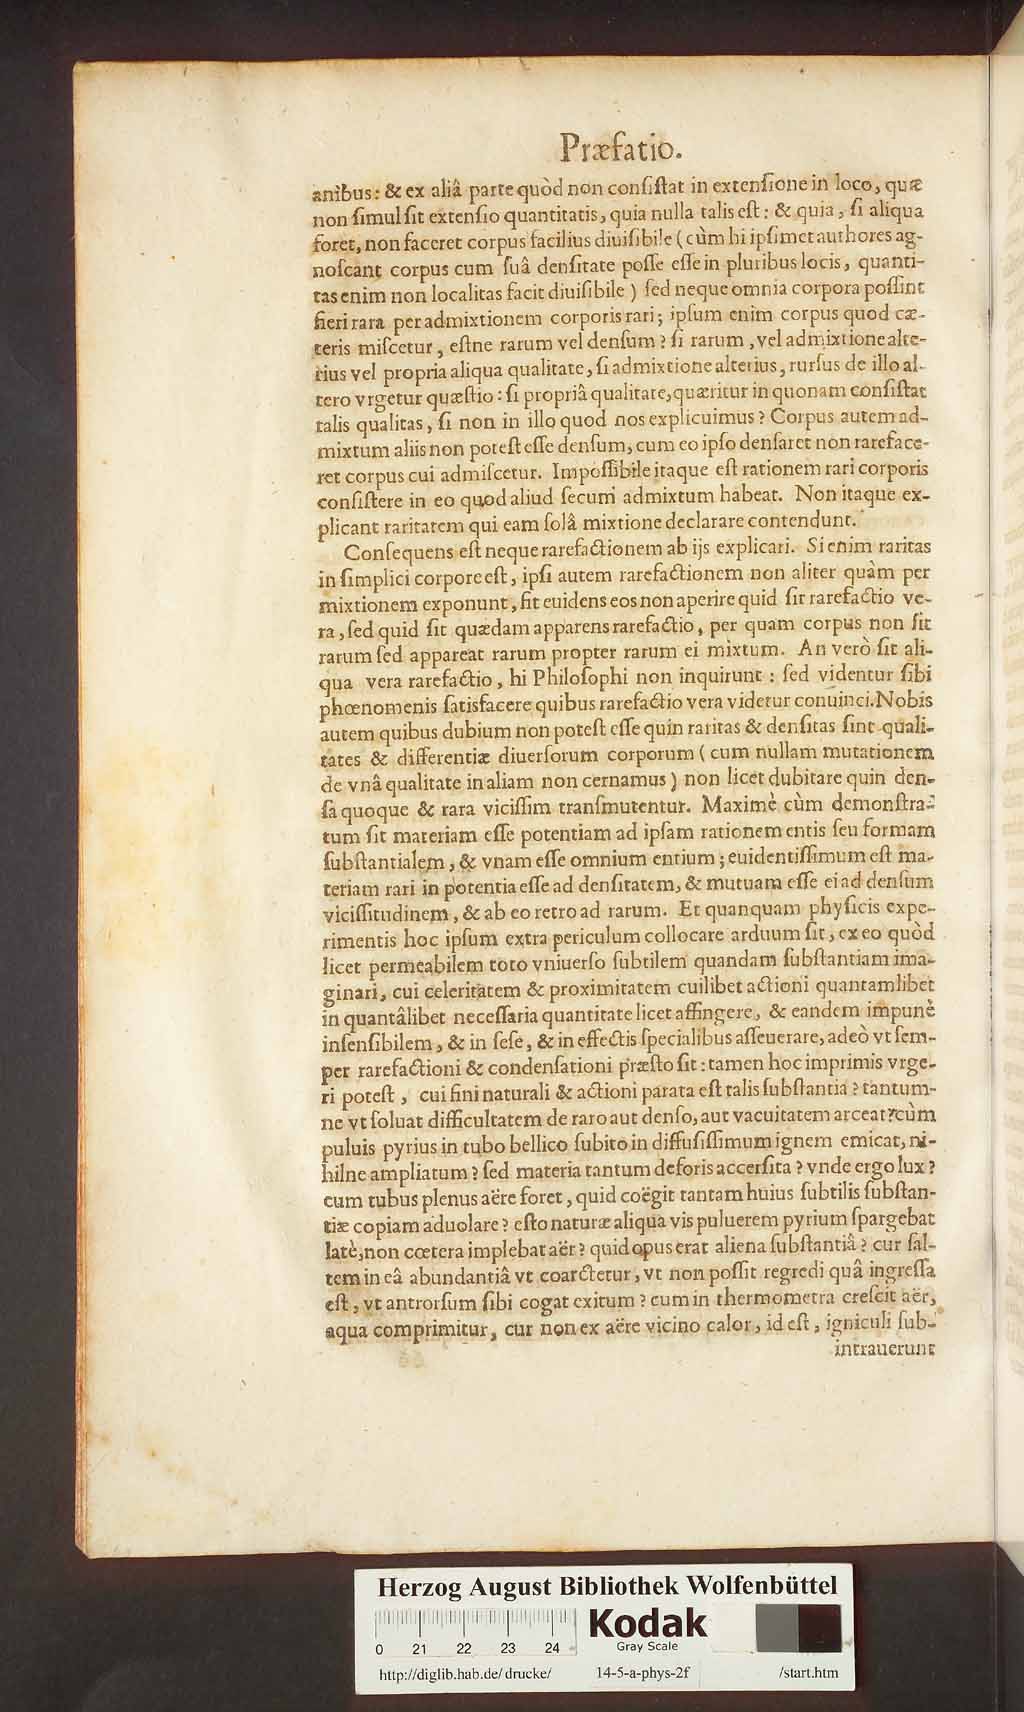 Præfatio.
anibus: & ex aliâ parte quòd non conſiſtat in extenſione in loco, quæ
non ſimul ſit extenſio quantitatis, quia nulla talis eſt: & quia, ſi aliqua
foret, non faceret corpus facilius diuiſibile (cùm hi ipſimet authores ag-
noſcant corpus cum ſuâ denſitate poſſe eſſe in pluribus locis, quanti-
tas enim non localitas facit diuiſibile) ſed neque omnia corpora poſſint
fieri rara per admixtionem corporis rari; ipſum enim corpus quod cæ-
teris miſcetur, eſtne rarum vel denſum? ſi rarum, vel admixtione alte-
rius vel propria aliqua qualitate, ſi admixtione alterius, rurſus de illo al-
tero vrgetur quæſtio: ſi propriâ qualitate, quæritur in quonam conſiſtat
talis qualitas, ſi non in illo quod nos explicuimus? Corpus autem ad-
mixtum aliis non poteſt eſſe denſum, cum eo ipſo denſaret non rareface-
ret corpus cui admiſcetur. Impoſſibile itaque eſt rationem rari corporis
conſiſtere in eo quod aliud ſecum admixtum habeat. Non itaque ex-
plicant raritatem qui eam ſolâ mixtione declarare contendunt.
Conſequens eſt neque rarefactionem ab ijs explicari. Si enim raritas
in ſimplici corpore eſt, ipſi autem rarefactionem non aliter quàm per
mixtionem exponunt, fit euidens eos non aperire quid ſit rarefactio ve-
ra, ſed quid ſit quædam apparens rarefactio, per quam corpus non fit
rarum ſed appareat rarum propter rarum ei mixtum. An verò ſit ali-
qua vera rarefactio, hi Philoſophi non inquirunt: ſed videntur ſibi
phœnomenis ſatisfacere quibus rarefactio vera videtur conuinci. Nobis
autem quibus dubium non poteſt eſſe quin raritas & denſitas ſint quali-
tates & differentiæ diuerſorum corporum (cum nullam mutationem
de vnâ qualitate in aliam non cernamus) non licet dubitare quin den-
ſa quoque & rara viciſſim tranſmutentur. Maximè cùm demonſtra-
tum ſit materiam eſſe potentiam ad ipſam rationem entis ſeu formam
ſubſtantialem, & vnam eſſe omnium entium; euidentiſſimum eſt ma-
teriam rari in potentia eſſe ad denſitatem, & mutuam eſſe ei ad denſum
viciſſitudinem, & ab eo retro ad rarum. Et quanquam phyſicis expe-
rimentis hoc ipſum extra periculum collocare arduum ſit, ex eo quòd
licet permeabilem toto vniuerſo ſubtilem quandam ſubſtantiam ima-
ginari, cui celeritatem & proximitatem cuilibet actioni quantamlibet
in quantâlibet neceſſaria quantitate licet affingere, & eandem impunè
inſenſibilem, & in ſeſe, & in effectis ſpecialibus aſſeuerare, adeò vt ſem-
per rarefactioni & condenſationi præſto ſit: tamen hoc imprimis vrge-
ri poteſt, cui fini naturali & actioni parata eſt talis ſubſtantia? tantum-
ne vt ſoluat difficultatem de raro aut denſo, aut vacuitatem arceat? cùm
puluis pyrius in tubo bellico ſubito in diffuſiſſimum ignem emicat, ni-
hilne ampliatum? ſed materia tantum deforis accerſita? vnde ergo lux?
cum tubus plenus aëre foret, quid coëgit tantam huius ſubtilis ſubſtan-
tiæ copiam aduolare? eſto naturæ aliqua vis puluerem pyrium ſpargebat
latè, non cœtera implebat aër? quid opus erat aliena ſubſtantiâ? cur ſal-
tem in eâ abundantiâ vt coarctetur, vt non poſſit regredi quâ ingreſſa
eſt, vt antrorſum ſibi cogat exitum? cum in thermometra creſcit aër,
aqua comprimitur, cur non ex aëre vicino calor, id eſt, igniculi ſub-
intrauerunt
Herzog August Bibliothek Wolfenbüttel
Kodak
Gray Scale
0 21 22 23 24
http://diglib.hab.de/drucke/ 14-5-a-phys-2f /start.htm